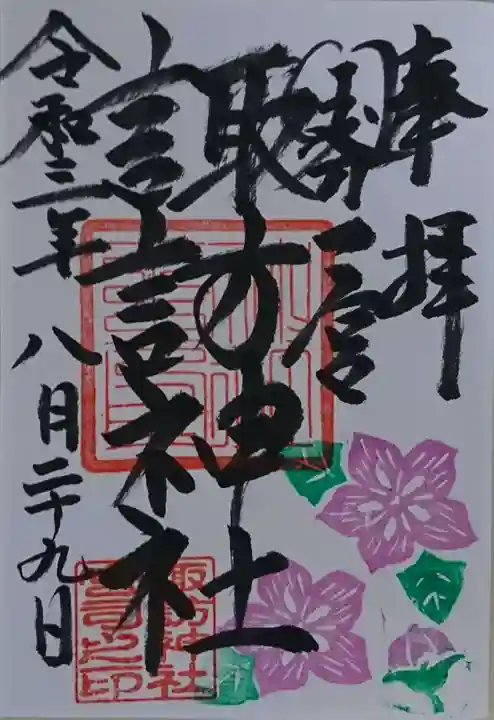 奉拝
三宮
諏訪神社
令和三年八月二十九日
諏訪神社
宮司之印